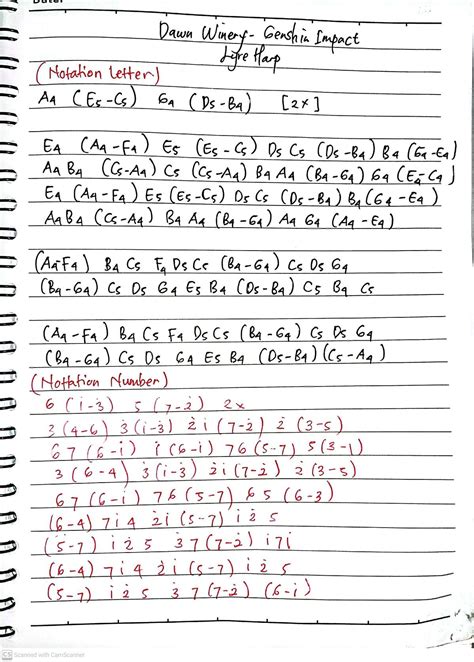 Date:
Dawn Winery - Genshin Impact
Lyre Harp
(Notation letter)
A4 (E5-C5) G4 (D5-B4) [2x]
E4 (A4-F4) E5 (E5-C5) D5 C5 (D5-B4) B4 (G4-E4)
A4 B4 (C5-A4) C5 (C5-A4) B4 A4 (B4-G4) G4 (E4-C4)
E4 (A4-F4) E5 (E5-C5) D5 C5 (D5-B4) B4 (G4-E4)
A4 B4 (C5-A4) B4 A4 (B4-G4) A4 G4 (A4-E4)
(A4-F4) B4 C5 F4 D5 C5 (B4-G4) C5 D5 G4
(B4-G4) C5 D5 G4 E5 B4 (D5-B4) C5 B4 C5
(A4-F4) B4 C5 F4 D5 C5 (B4-G4) C5 D5 G4
(B4-G4) C5 D5 G4 E5 B4 (D5-B4) (C5-A4)
(Nottation Number)
6 (i-3) 5 (7-2̇) 2x
3 (4-6) 3̇ (i-3̇) 2̇ i (7-2̇) 2̇ (3-5)
6 7 (6-i) i (6-i) 7 6 (5-7) 5 (3-1)
3 (6-4) 3̇ (i-3̇) 2̇ i (7-2̇) 2̇ (3-5)
6 7 (6-i) 7 6 (5-7) 6 5 (6-3)
(6-4) 7 i 4 2̇ i (5-7) i 2̇ 5
(5-7) i 2̇ 5 3̇ 7 (7-2̇) i 7 i
(6-4) 7 i 4 2̇ i (5-7) i 2̇ 5
(5-7) i 2̇ 5 3̇ 7 (7-2̇) (6-i)
CS Scanned with CamScanner